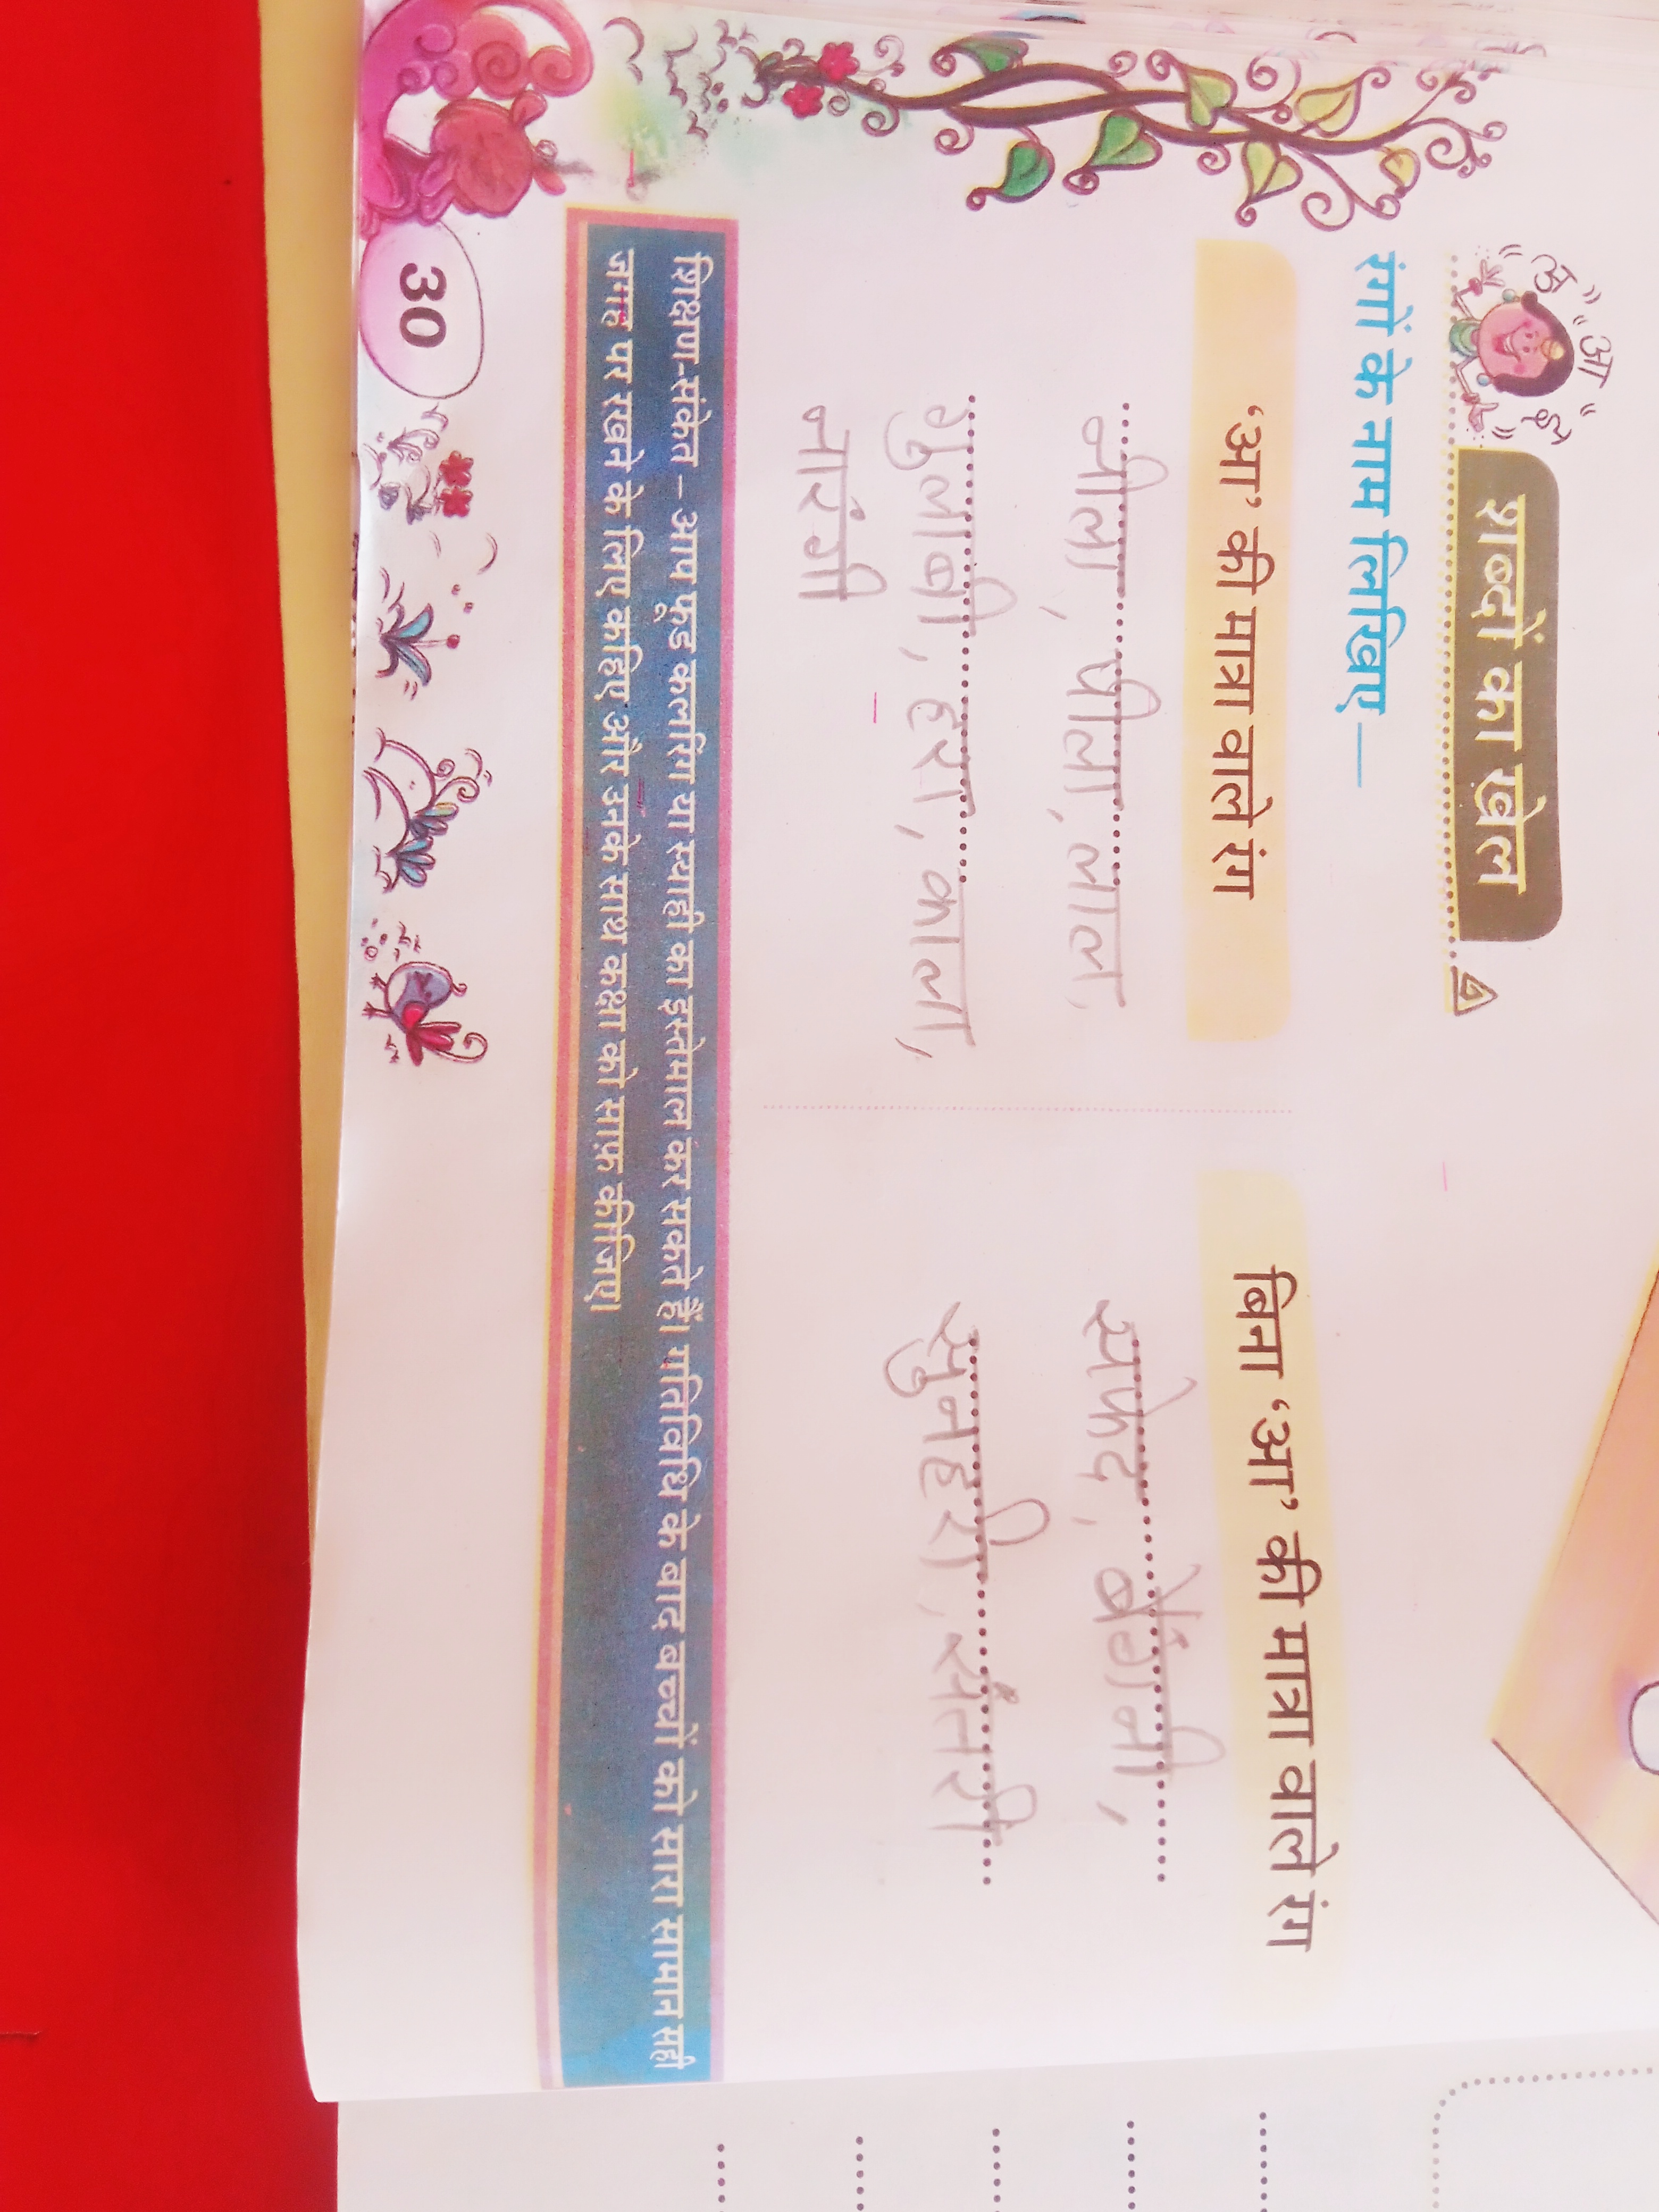 अ आ इ
शब्दों का खेल
रंगों के नाम लिखिए—
‘आ’ की मात्रा वाले रंग
नीला, पीला, लाल,
गुलाबी, हरा, काला,
नारंगी
बिना ‘आ’ की मात्रा वाले रंग
सफेद, बैंगनी,
सुनहरी, संतरी
शिक्षण-संकेत – आप फूड कलरिंग या स्याही का इस्तेमाल कर सकते हैं। गतिविधि के बाद बच्चों को सारा सामान सही
जगह पर रखने के लिए कहिए और उनके साथ कक्षा को साफ़ कीजिए।
30